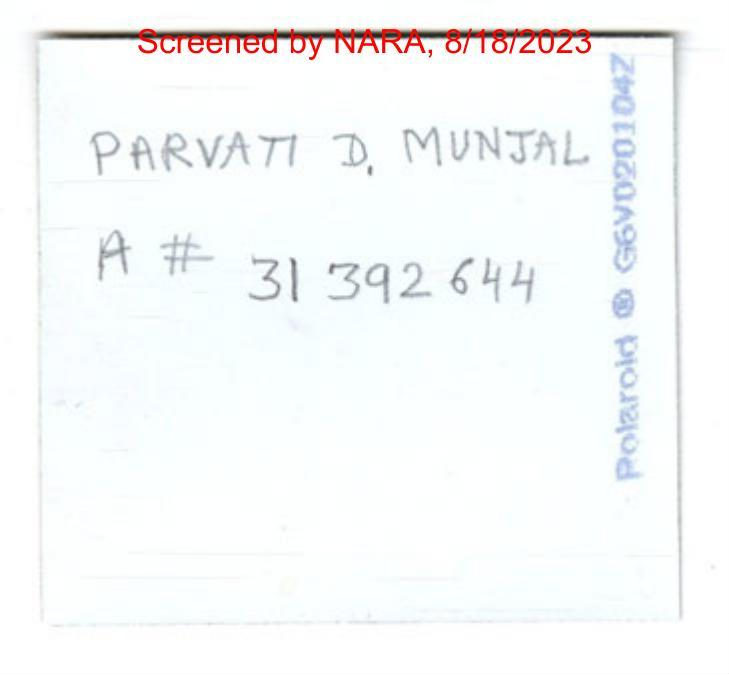 Screened by NARA, 8/18/2023
PARVATI D. MUNJAL
A # 31 392 644
Polaroid ® G6VD20104Z